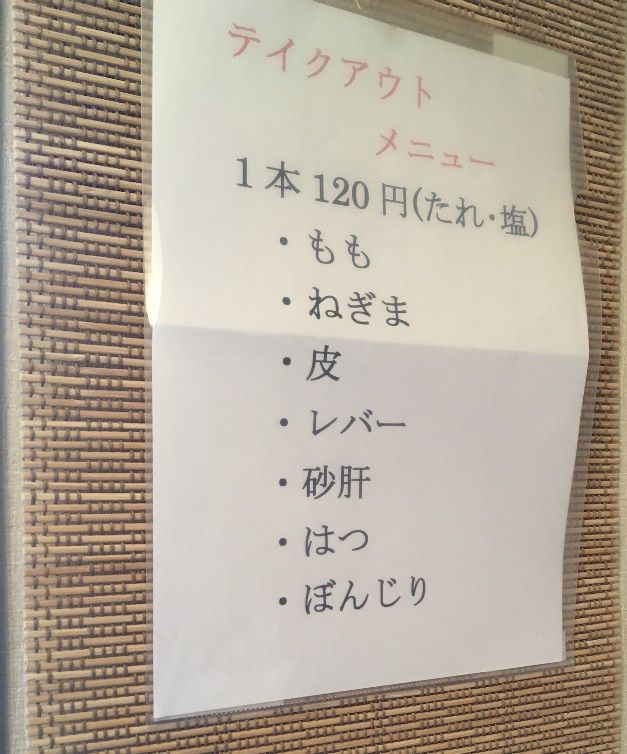 テイクアウト
メニュー
1本120円(たれ・塩)
・もも
・ねぎま
・皮
・レバー
・砂肝
・はつ
・ぼんじり